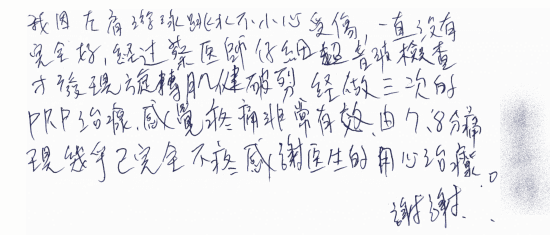 我因左肩游泳跳水不小心受傷,一直沒有
完全好,經过蔡医師仔細超音波檢查
才發現旋轉肌腱破裂 經做三次的
PRP治療,感覺疼痛非常有效,由7、8分痛
現幾乎已完全不疼感謝医生的用心治療。
謝謝.